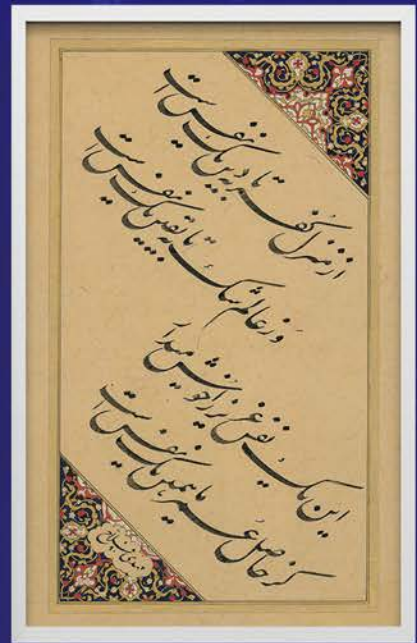 از منزل کفر تا به دین یک نفس است
وز عالم شک تا به یقین یک نفس است
این یک نفس عزیز را خوش میدار
کز حاصل عمر ما همین یک نفس است
مهدی